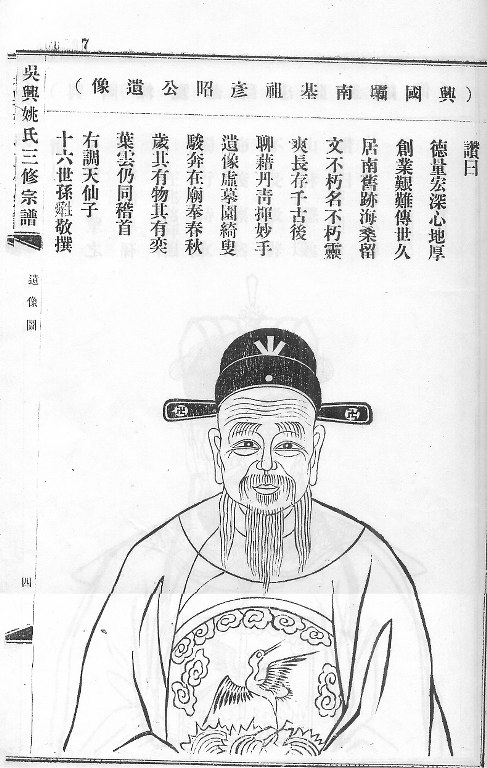 7
(興國壩南基祖彥昭公遺像)
讚曰
德量宏深心地厚
創業艱難傳世久
居南舊跡海桑留
文不朽名不朽靈
爽長存千古後
聊藉丹靑揮妙手
遺像虛摹園綺叟
駿奔在廟奉春秋
歲其有物其有奕
葉雲仍同稽首
右調天仙子
十六世孫敬撰
吳興姚氏三修宗譜
遺像圖
四